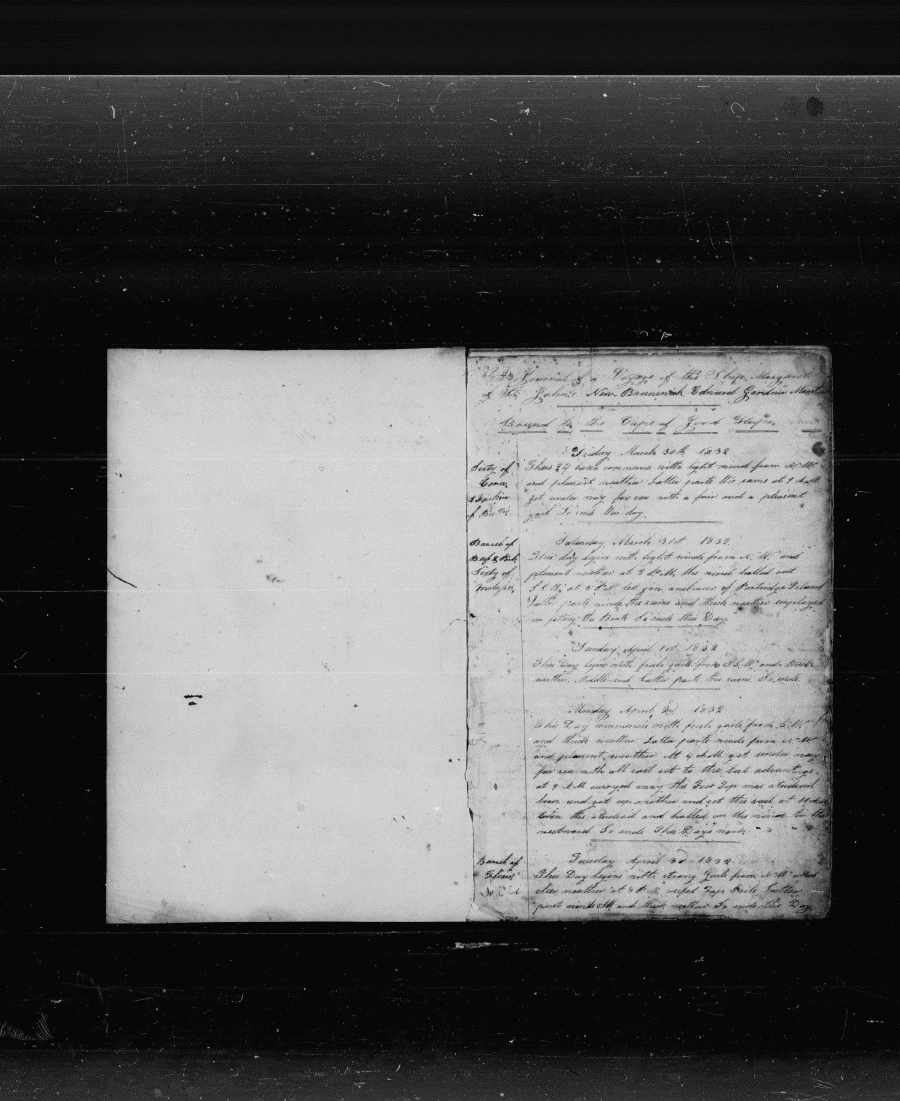 Journal of a Voyage of the Ship Margaret
of St. John's New Brunswick Edward Gardner Master
Bound to the Cape of Good Hope
Friday March 30th 1832
Sixty of
Corn,
These 24 hours commence with light wind from N.W.
and pleasant weather Latter parts the same at 9 A.M.
got under way for sea with a fair and a pleasant
gail So ends this day
Barrel of
Beef & Pork
Sixty of
Molases
Saturday March 31st 1832
This day begins with light winds from N. W. and
pleasant weather at 2 P.M. the wind halled out
S.S.W. at 5 P.M. let gon anchors of Partridge Island
Latter parts winds the same and thick weather employed
in fitting the Boats So ends this Day
Sunday April 1st 1832
This Day begins with fresh gails from S.S.W. and thick
weather. Middle and Latter parts the same. So ends
Monday April 2d 1832
This Day commences with fresh gails from S.W.
and thick weather Latter parts winds from N. W.
and pleasant weather At 4 A.M. got under way
for sea with all sail set to the best advantage,
at 9 A.M. carryed away the Fore Top mas studend
boom and got up another and set the sail at
took the studend and halled on the wind to the
westward So ends This Days work
Barrel of
Flour
Tuesday April 3d 1832
This Day begins with strong Gails from N.W. and
clear weather at 4 P.M. reefed Top Sails Latter
part winds and thick weather So ends this Day